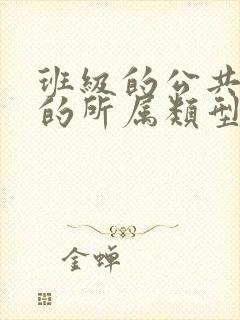 班級的公共
的所属類型
金蝉